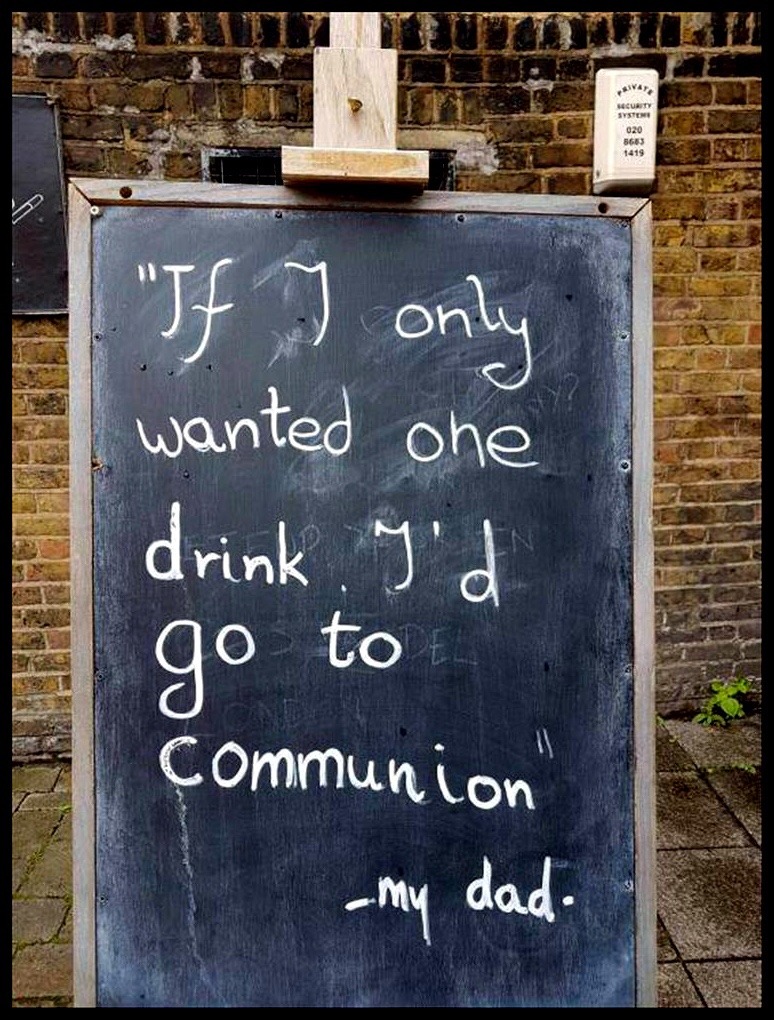 PRIVATE
SECURITY
SYSTEMS
020
8683
1419
"If I only
wanted one
drink. I'd
go to
communion"
-my dad.